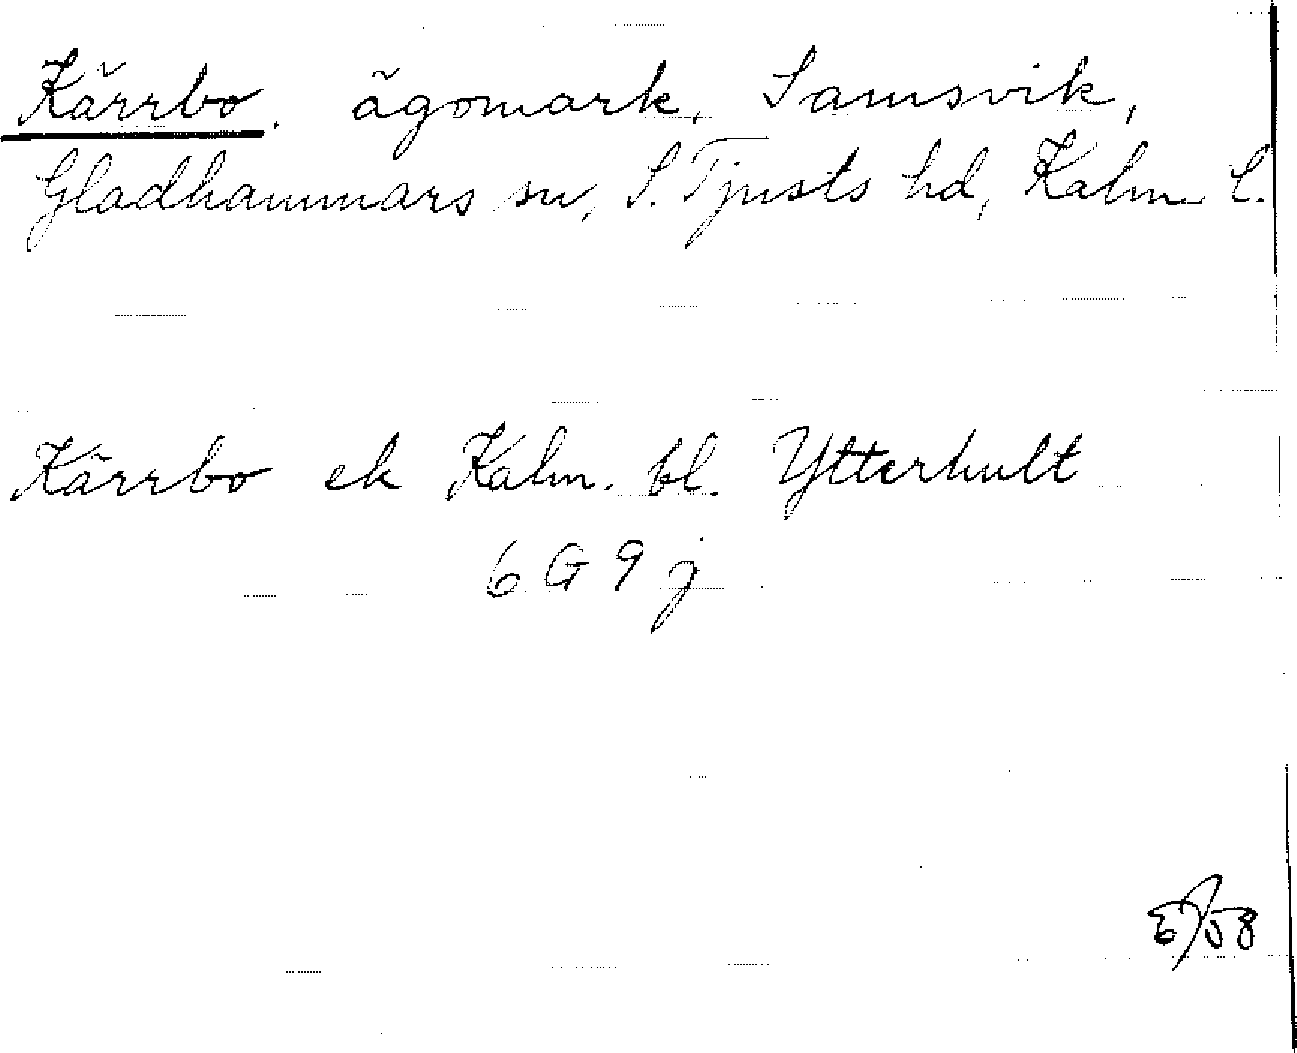 Kärrbo. ägomark, Samsvik,
Gladhammars sn, S. Tjusts hd, Kalm. l.
Kärrbo ek Kalm. bl. Ytterhult
6 G 9 j